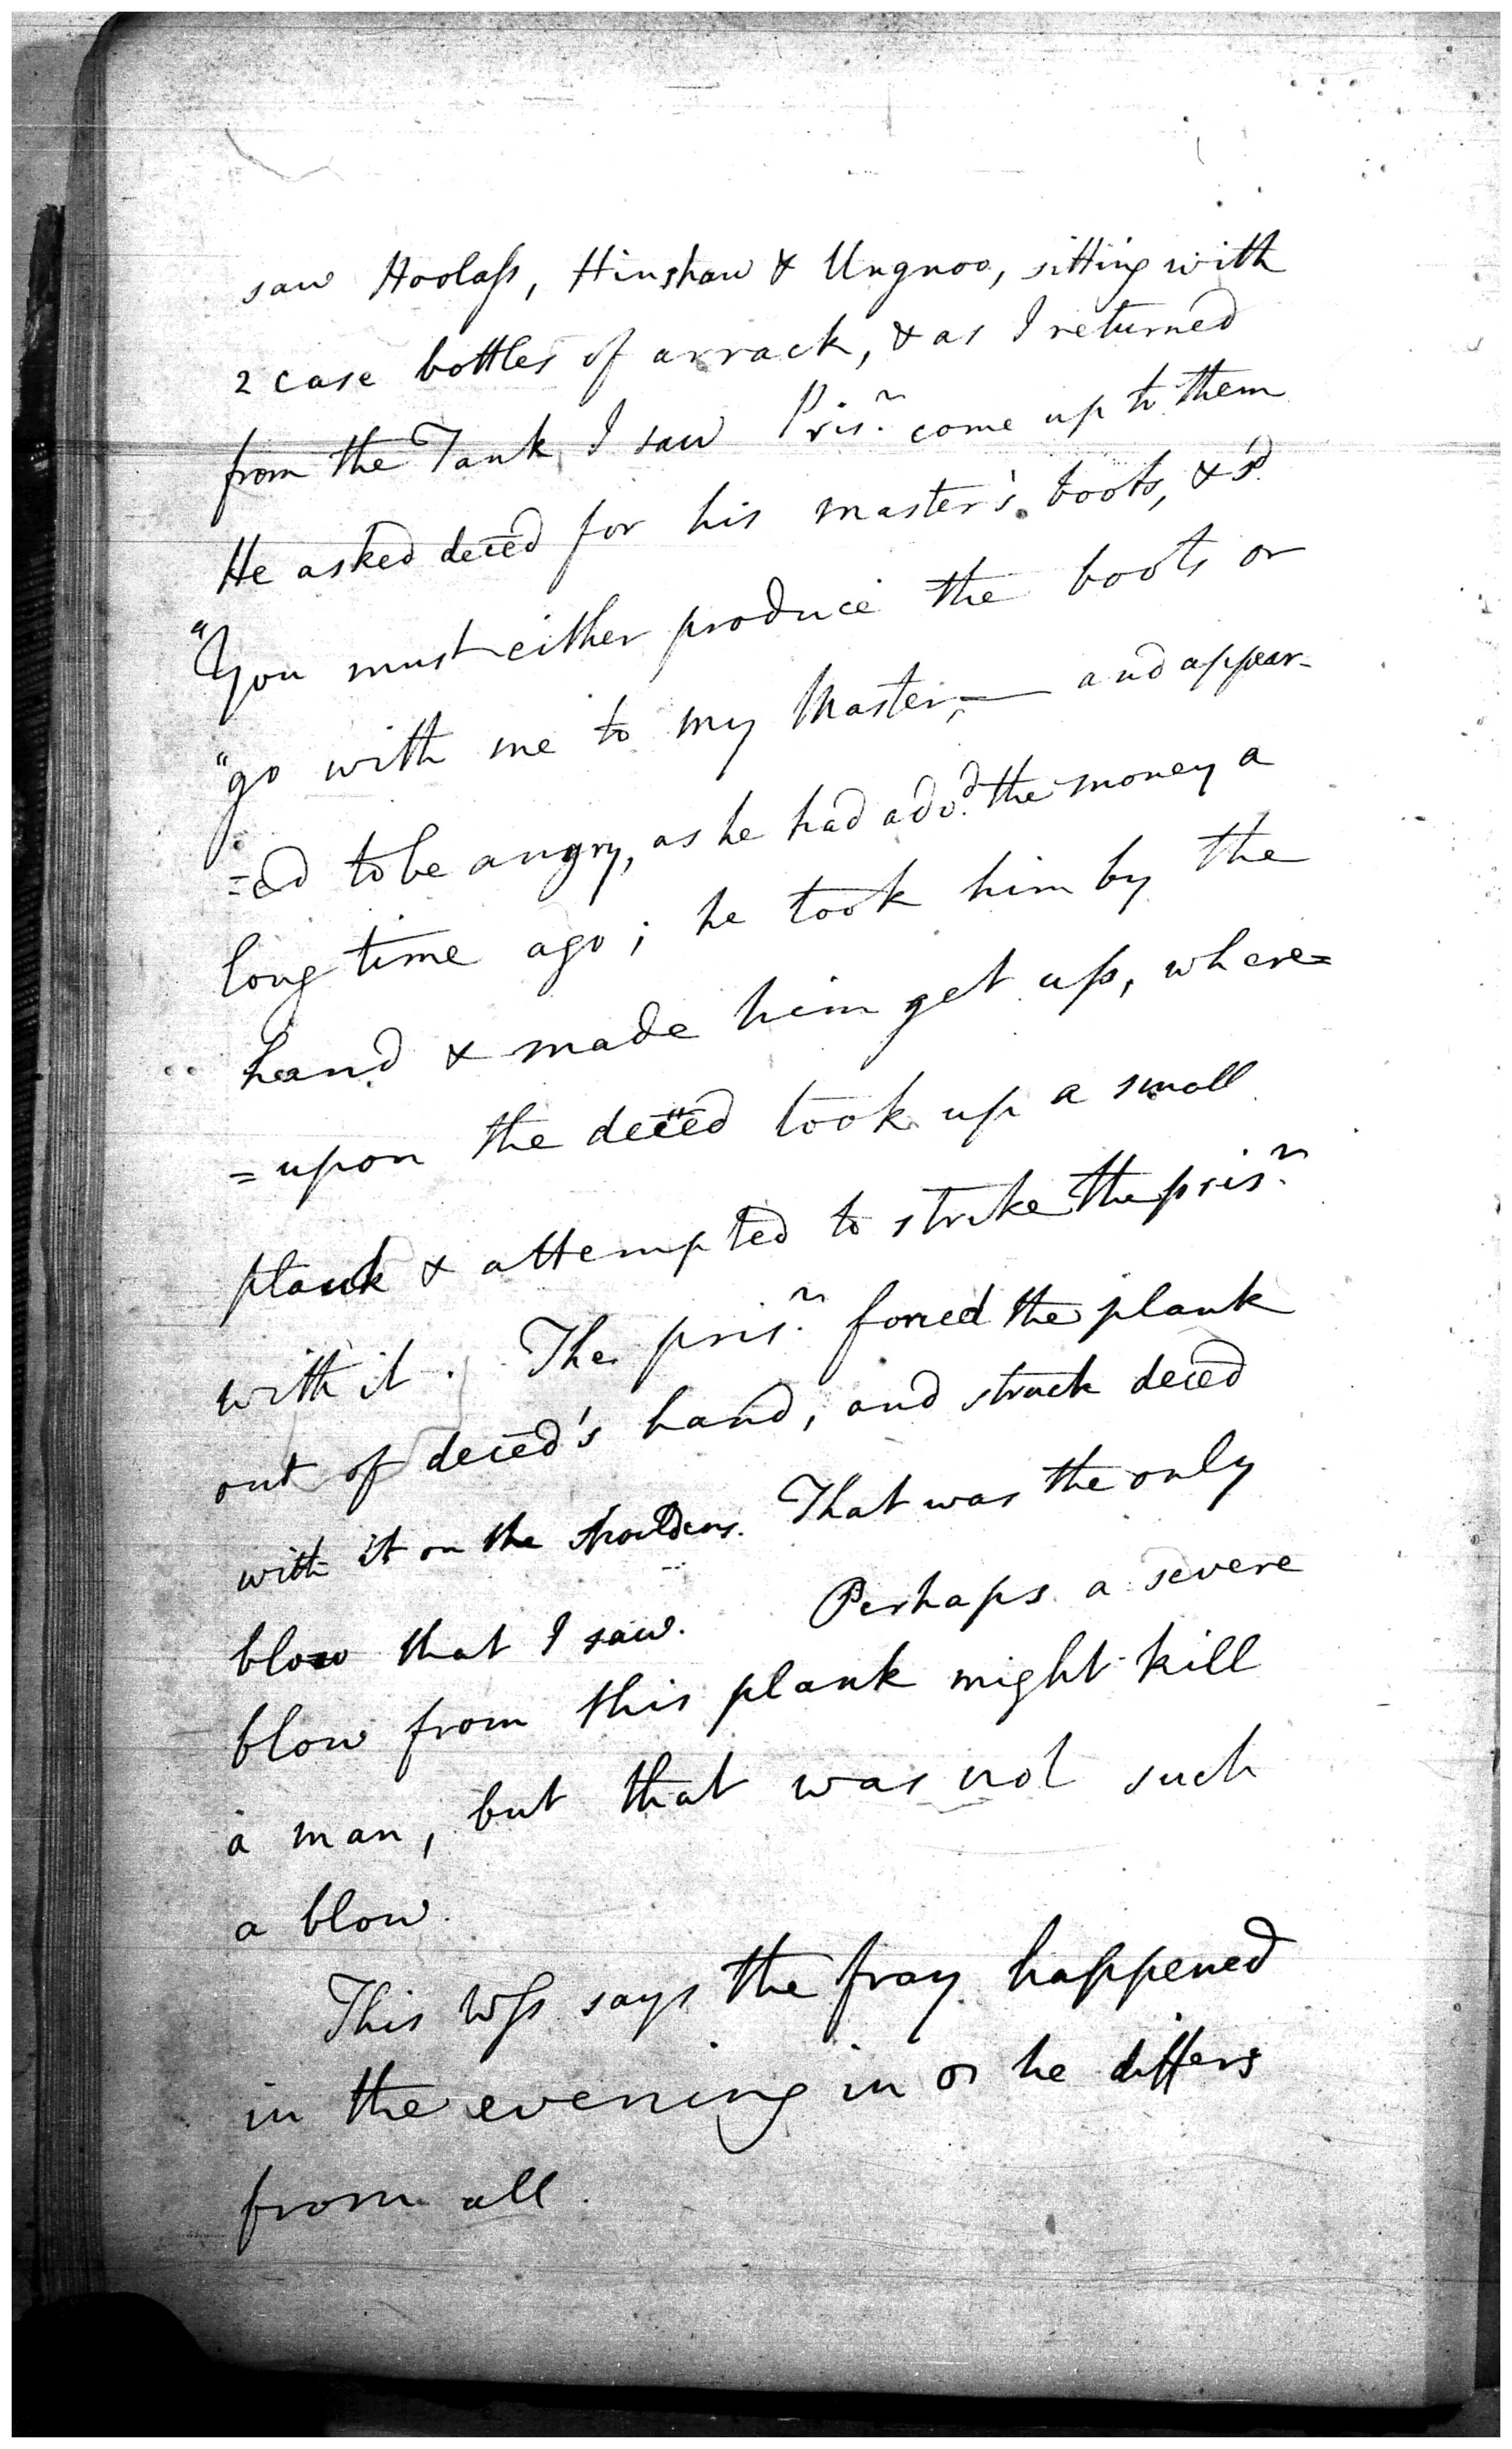 saw Hoolaſs, Hinshaw & Ungnoo, sitting with
2 case bottles of arrack, & as I returned
from the Tank I saw Prisr. come up to them
He asked deced for his master's boots, & sd.
"You must either produce the boots or
"go with me to my Master, — and appear-
=ed to be angry, as he had advd. the money a
long time ago; he took him by the
hand & made him get up, where=
=upon the deced took up a small
plank & attempted to strike the prisr.
with it. The prisr. forced the plank
out of deced's hand, and struck deced
with it on the shoulders. That was the only
blow that I saw. Perhaps a severe
blow from this plank might kill
a man, but that was not such
a blow.
This Wſs says the fray happened
in the evening in he differs
from all.